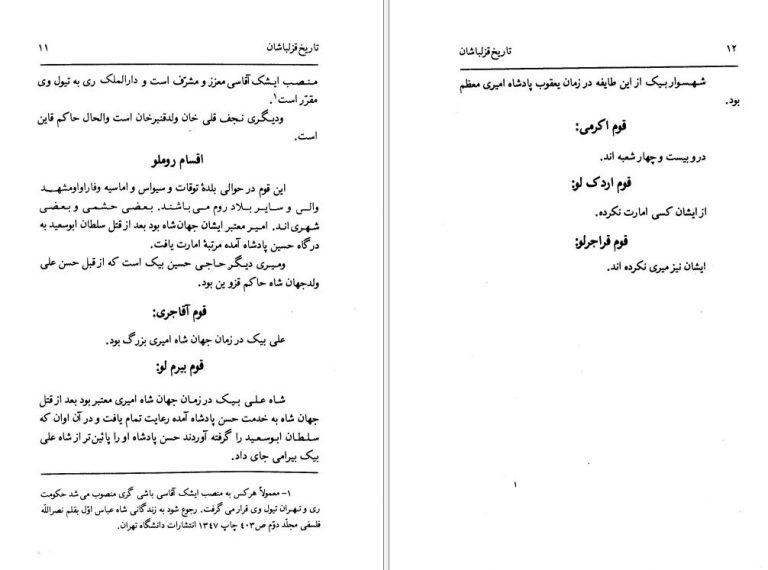 تاریخ قزلباشان ۱۱
منصب ایشک آقاسی معزز و مشرّف است و دارالملک ری به تیول وی
مقرّر است۱.
ودیگری نجف قلی خان ولدقنبرخان است والحال حاکم قاین
است.
اقسام روملو
این قوم در حوالی بلدهٔ توقات و سیواس و اماسیه وفاراواومشهد
والی و سایر بلاد روم می باشند. بعضی حشمی و بعضی
شهری اند. امیر معتبر ایشان جهان شاه بود بعد از قتل سلطان ابوسعید به
درگاه حسین پادشاه آمده مرتبهٔ امارت یافت.
ومیری دیگر حاجی حسین بیک است که از قبل حسن علی
ولدجهان شاه حاکم قزوین بود.
قوم آقاجری:
علی بیک در زمان جهان شاه امیری بزرگ بود.
قوم بیرم لو:
شاه علی بیک در زمان جهان شاه امیری معتبر بود بعد از قتل
جهان شاه به خدمت حسن پادشاه آمده رعایت تمام یافت و در آن اوان که
سلطان ابوسعید را گرفته آوردند حسن پادشاه او را پائین تر از شاه علی
بیک بیرامی جای داد.
۱– معمولاً هرکس به منصب ایشک آقاسی باشی گری منصوب می شد حکومت
ری و تهران تیول وی قرار می گرفت. رجوع شود به زندگانی شاه عباس اوّل بقلم نصراللّه
فلسفی مجلّد دوّم ص۴۰۳ چاپ ۱۳۴۷ انتشارات دانشگاه تهران.
۱۲ تاریخ قزلباشان
شهسوار بیک از این طایفه در زمان یعقوب پادشاه امیری معظم
بود.
قوم اکرمی:
درو بیست و چهار شعبه اند.
قوم اردک لو:
از ایشان کسی امارت نکرده.
قوم قراجرلو:
ایشان نیز میری نکرده اند.
۱